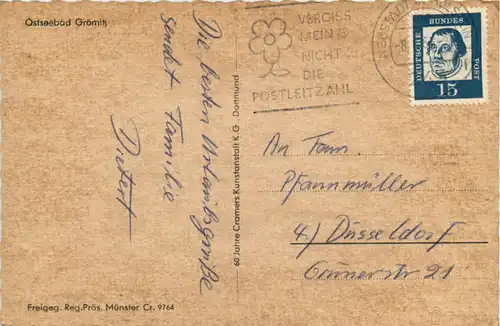 Ostseebad Grömitz
Die besten Urlaubsgrüße
sendet Familie
Dietert
60 Jahre Cramers Kunstanstalt K.G. Dortmund
Freigeg. Reg.Präs. Münster Cr. 9764
VERGISS
MEIN
NICHT
DIE
POSTLEITZAHL
DEUTSCHE
BUNDES
POST
15
An Fam.
Pfannmüller
4) Düsseldorf
Grünerstr 21